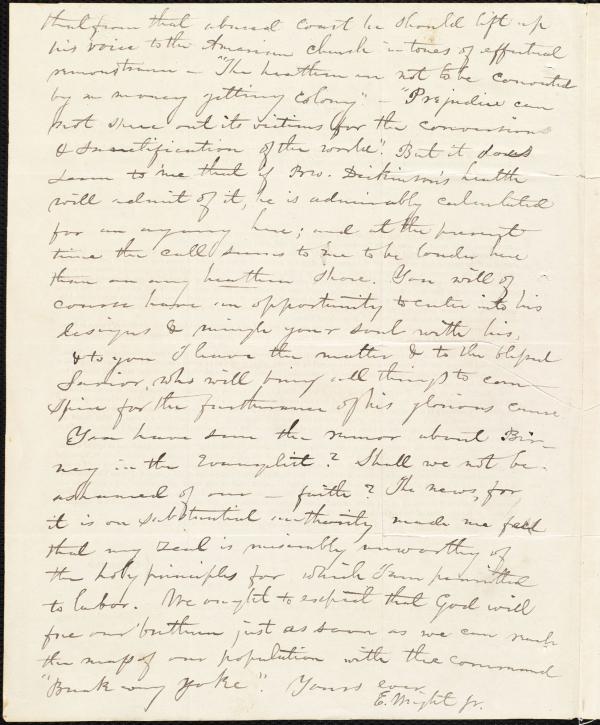 that from that abused coast he should lift up
his voice to the American church in tones of effectual
remonstrance – "The heathen are not to be converted
by a money getting colony" – "Prejudice can
not spew out its victims for the conversion
& sanctification of the world". But it does
seem to me that if Bro. Dickinson's health
will admit of it, he is admirably calculated
for an agency here; and at the present
time the call seems to me to be louder here
than on any heathen shore. You will of
course have an opportunity to enter into his
designs & mingle your soul with his,
& to you I leave the matter & to the blessed
Savior, who will bring all things to con-
spire for the furtherance of his glorious cause
You have seen the rumor about Bir-
ney in the Evangelist? Shall we not be
ashamed of our – faith? The news, for
it is on substantial authority made me feel
that my zeal is miserably unworthy of
the holy principles for which I am permitted
to labor. We ought to expect that God will
free our brethren just as soon as we can reach
the mass of our population with the command
"Break every yoke". Yours ever
E. Wright Jr.